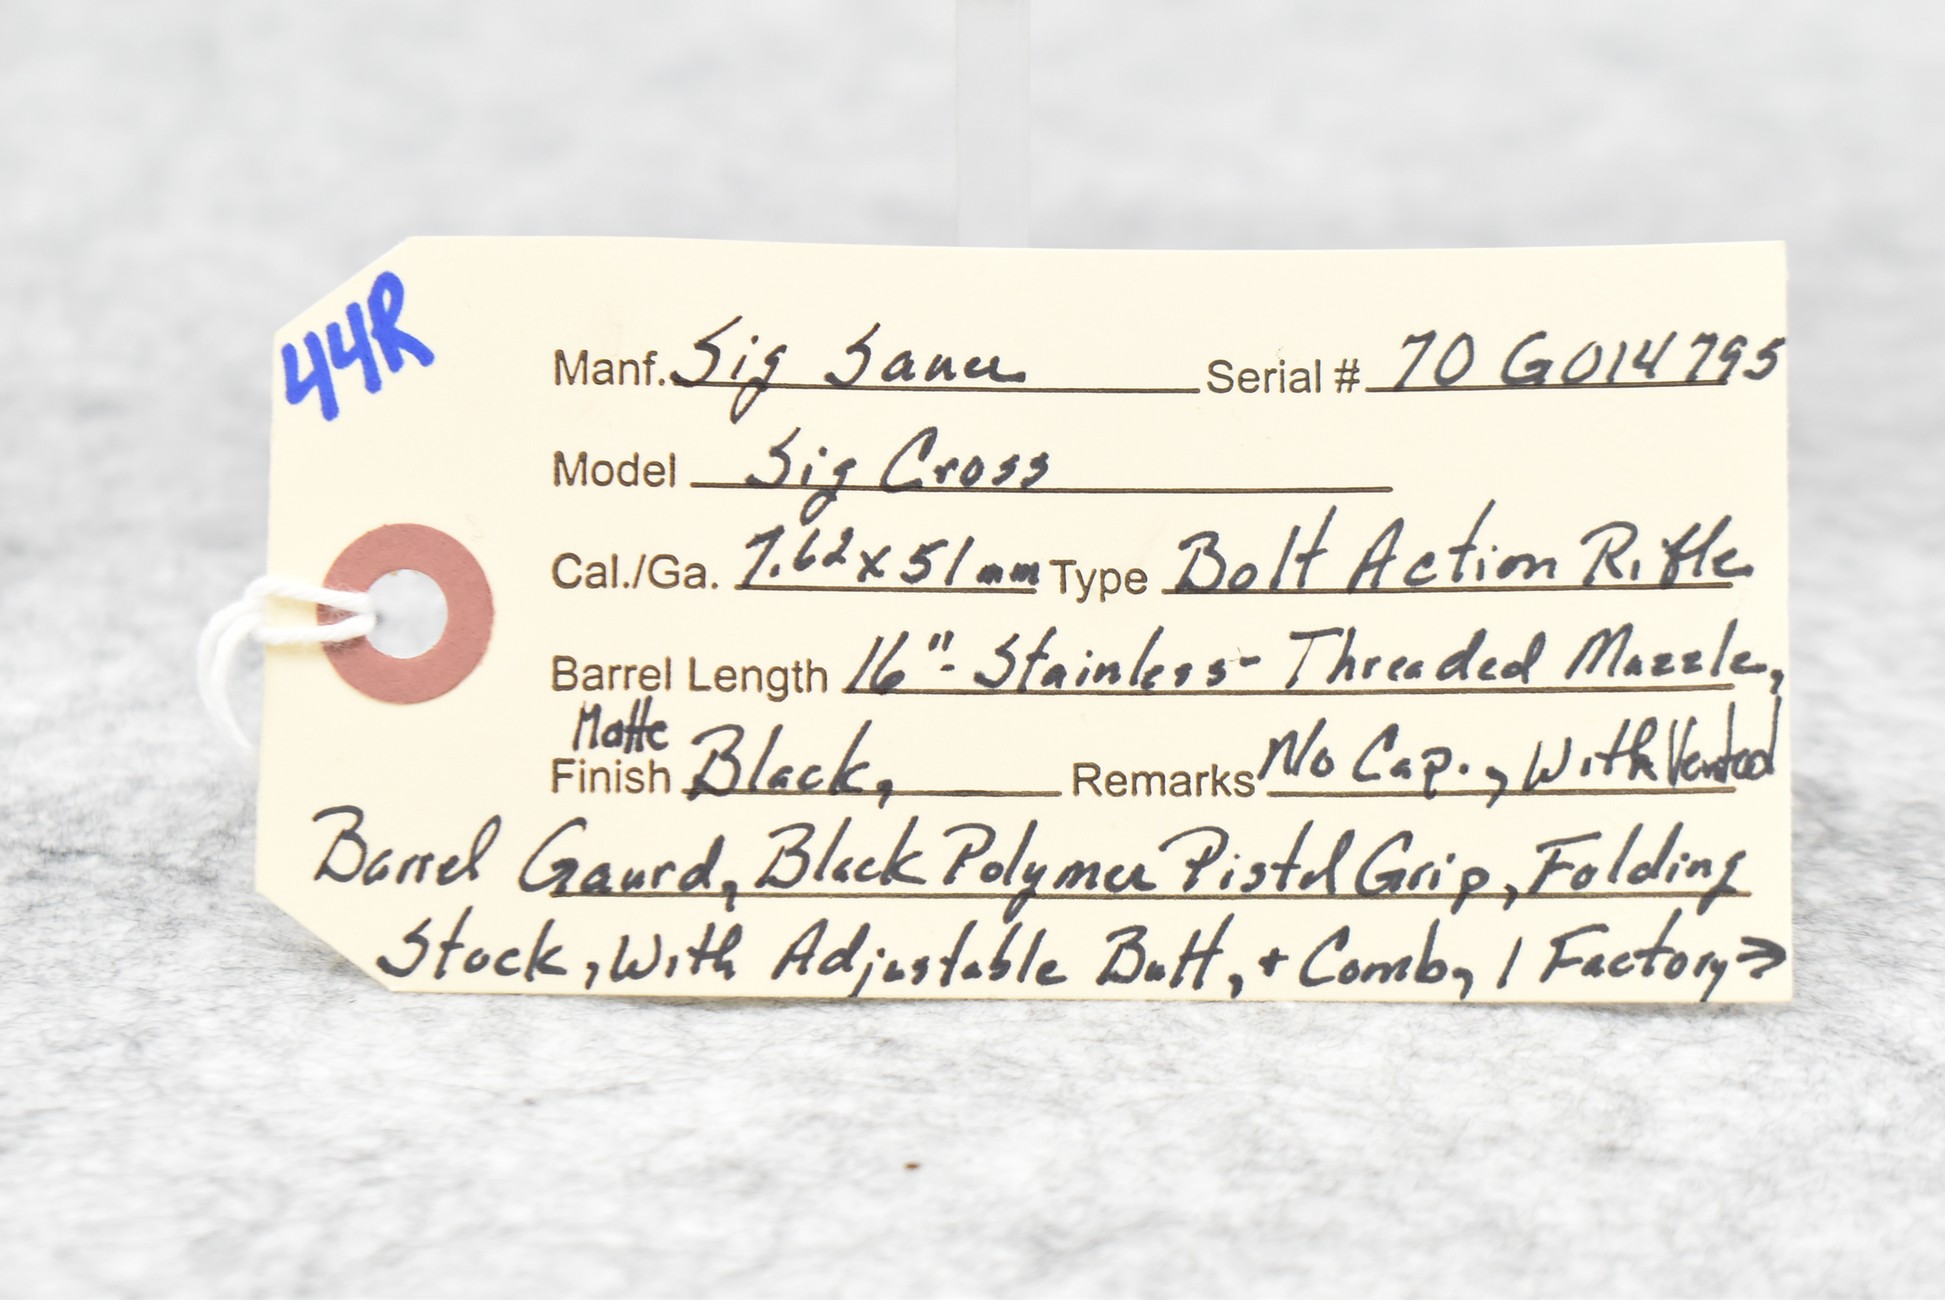 44R
Manf. Sig Sauer Serial # 70 G014795
Model Sig Cross
Cal./Ga. 7.62 x 51mm Type Bolt Action Rifle
Barrel Length 16"- Stainless - Threaded Muzzle,
Matte
Finish Black, Remarks No Cap., With Vented
Barrel Gaurd, Black Polymer Pistol Grip, Folding
Stock, With Adjustable Butt, + Comb, 1 Factory →